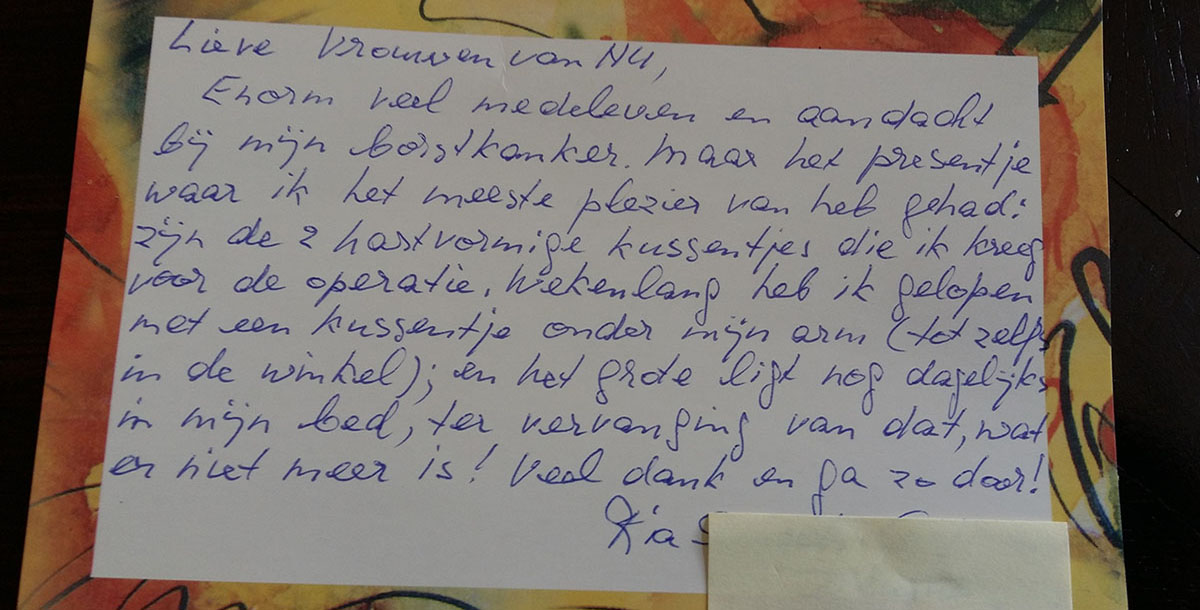 Lieve Vrouwen van NU,
Enorm veel medeleven en aandacht
bij mijn borstkanker. Maar het presentje
waar ik het meeste plezier van heb gehad:
zijn de 2 hartvormige kussentjes die ik kreeg
voor de operatie. Wekenlang heb ik gelopen
met een kussentje onder mijn arm (tot zelfs
in de winkel); en het grote ligt nog dagelijks
in mijn bed, ter vervanging van dat, wat
er niet meer is! Veel dank en ga zo door!
Ria